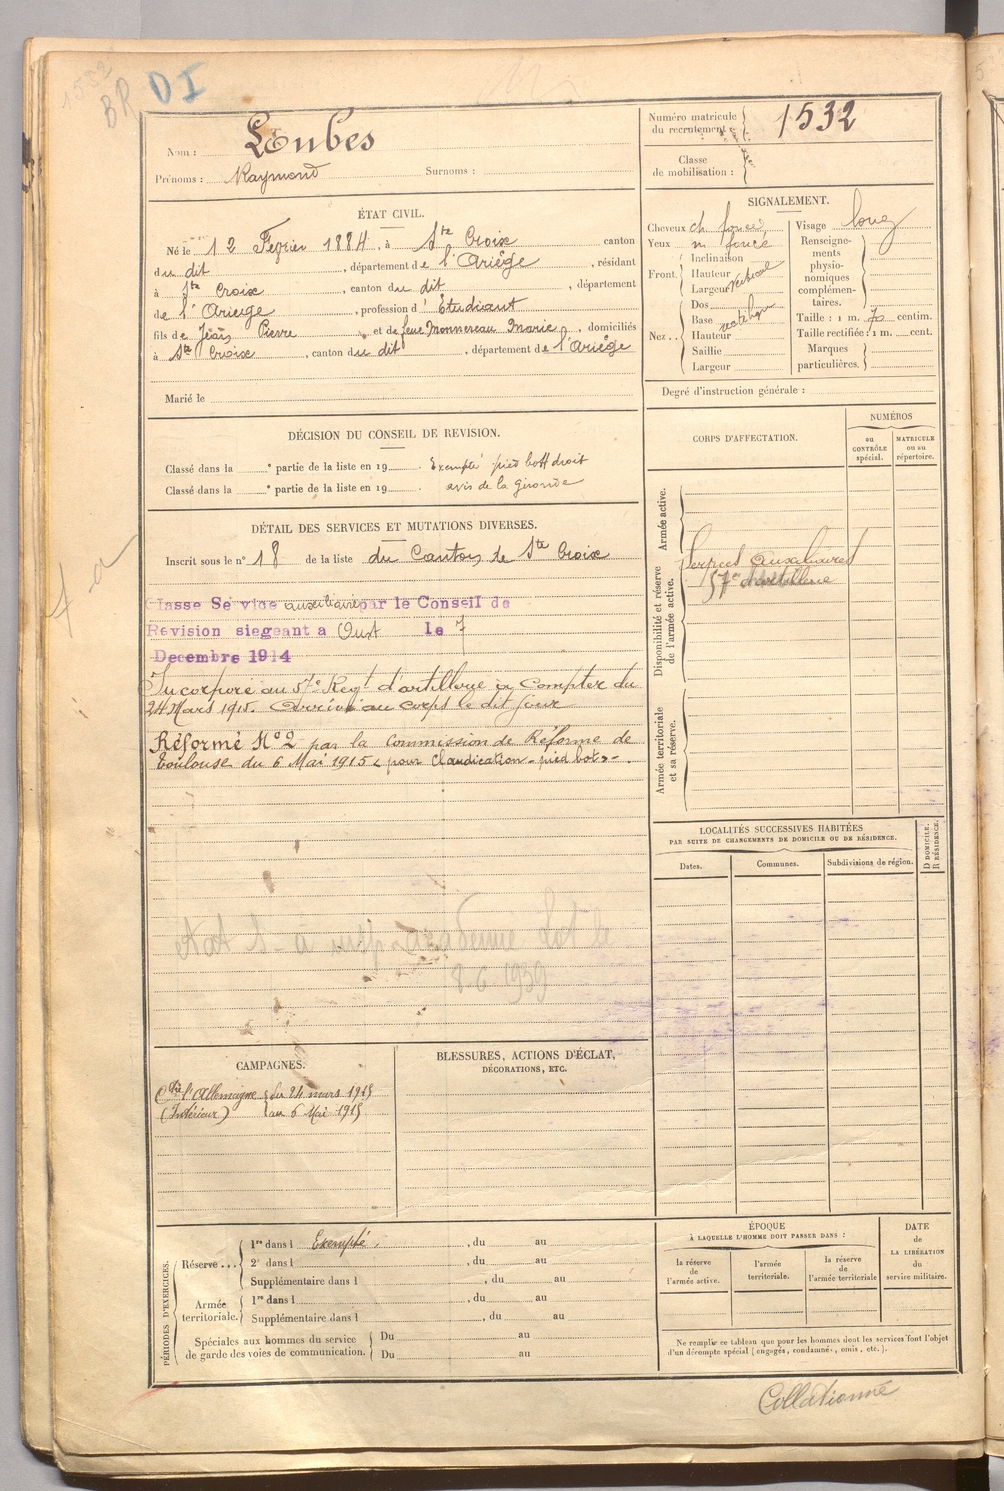 1532
BR
DI
Nom : Loubes
Prénoms : Raymond Surnoms :
Numéro matricule du recrutement : 1532
Classe de mobilisation :
ÉTAT CIVIL.
Né le 12 Février 1884, à Ste Croix canton
du dit, département de l'Ariège, résidant
à Ste Croix, canton du dit, département
de l'Ariège, profession d'Etudiant
fils de Jean Pierre et de feue Monnereau Marie, domiciliés
à Ste Croix, canton du dit, département de l'Ariège
Marié le
SIGNALEMENT.
Cheveux ch. foncé
Yeux m foncé
Front. Inclinaison
Hauteur
Largeur vertical
Nez .. Dos
Base rectiligne
Hauteur
Saillie
Largeur
Visage long
Renseigne-
ments
physio-
nomiques
complémen-
taires.
Taille : 1 m. 70 centim.
Taille rectifiée : 1 m. cent.
Marques
particulières.
Degré d'instruction générale :
DÉCISION DU CONSEIL DE REVISION.
Classé dans la e partie de la liste en 19 . Exempté pied bott droit
Classé dans la e partie de la liste en 19 . avis de la gironde
DÉTAIL DES SERVICES ET MUTATIONS DIVERSES.
Inscrit sous le n° 18 de la liste du Canton de Ste Croix
Classe Service auxiliaire par le Conseil de
Revision siegeant a Oust le 7
Decembre 1914
Incorporé au 57e Regt d'artillerie à Compter du
24 Mars 1915. Arrivé au corps le dit jour
Réformé N°2 par la Commission de Réforme de
Toulouse du 6 Mai 1915 « pour Claudication - pied bot ».
académie Lot le
8-6-1939
CORPS D'AFFECTATION.
NUMÉROS
au
CONTRÔLE
spécial.
MATRICULE
ou au
répertoire.
Armée active.
Disponibilité et réserve
de l'armée active.
Services Auxiliaires
57e d'artillerie
Armée territoriale
et sa réserve.
LOCALITÉS SUCCESSIVES HABITÉES
PAR SUITE DE CHANGEMENTS DE DOMICILE OU DE RÉSIDENCE.
Dates.
Communes.
Subdivisions de région.
D DOMICILE.
R RÉSIDENCE.
CAMPAGNES.
Ctre l'Allemagne du 24 mars 1915
(Intérieur) au 6 Mai 1915
BLESSURES, ACTIONS D'ÉCLAT,
DÉCORATIONS, ETC.
PÉRIODES D'EXERCICES.
Réserve ... 1re dans l Exempté. , du au
2e dans l , du au
Supplémentaire dans l , du au
Armée
territoriale. 1re dans l , du au
Supplémentaire dans l , du au
Spéciales aux hommes du service
de garde des voies de communication. Du au
Du au
ÉPOQUE
À LAQUELLE L'HOMME DOIT PASSER DANS :
la réserve
de
l'armée active.
l'armée
territoriale.
la réserve
de
l'armée territoriale
DATE
de
LA LIBÉRATION
du
service militaire.
Ne remplir ce tableau que pour les hommes dont les services font l'objet
d'un décompte spécial (engagés, condamnés, omis, etc.).
Collationné